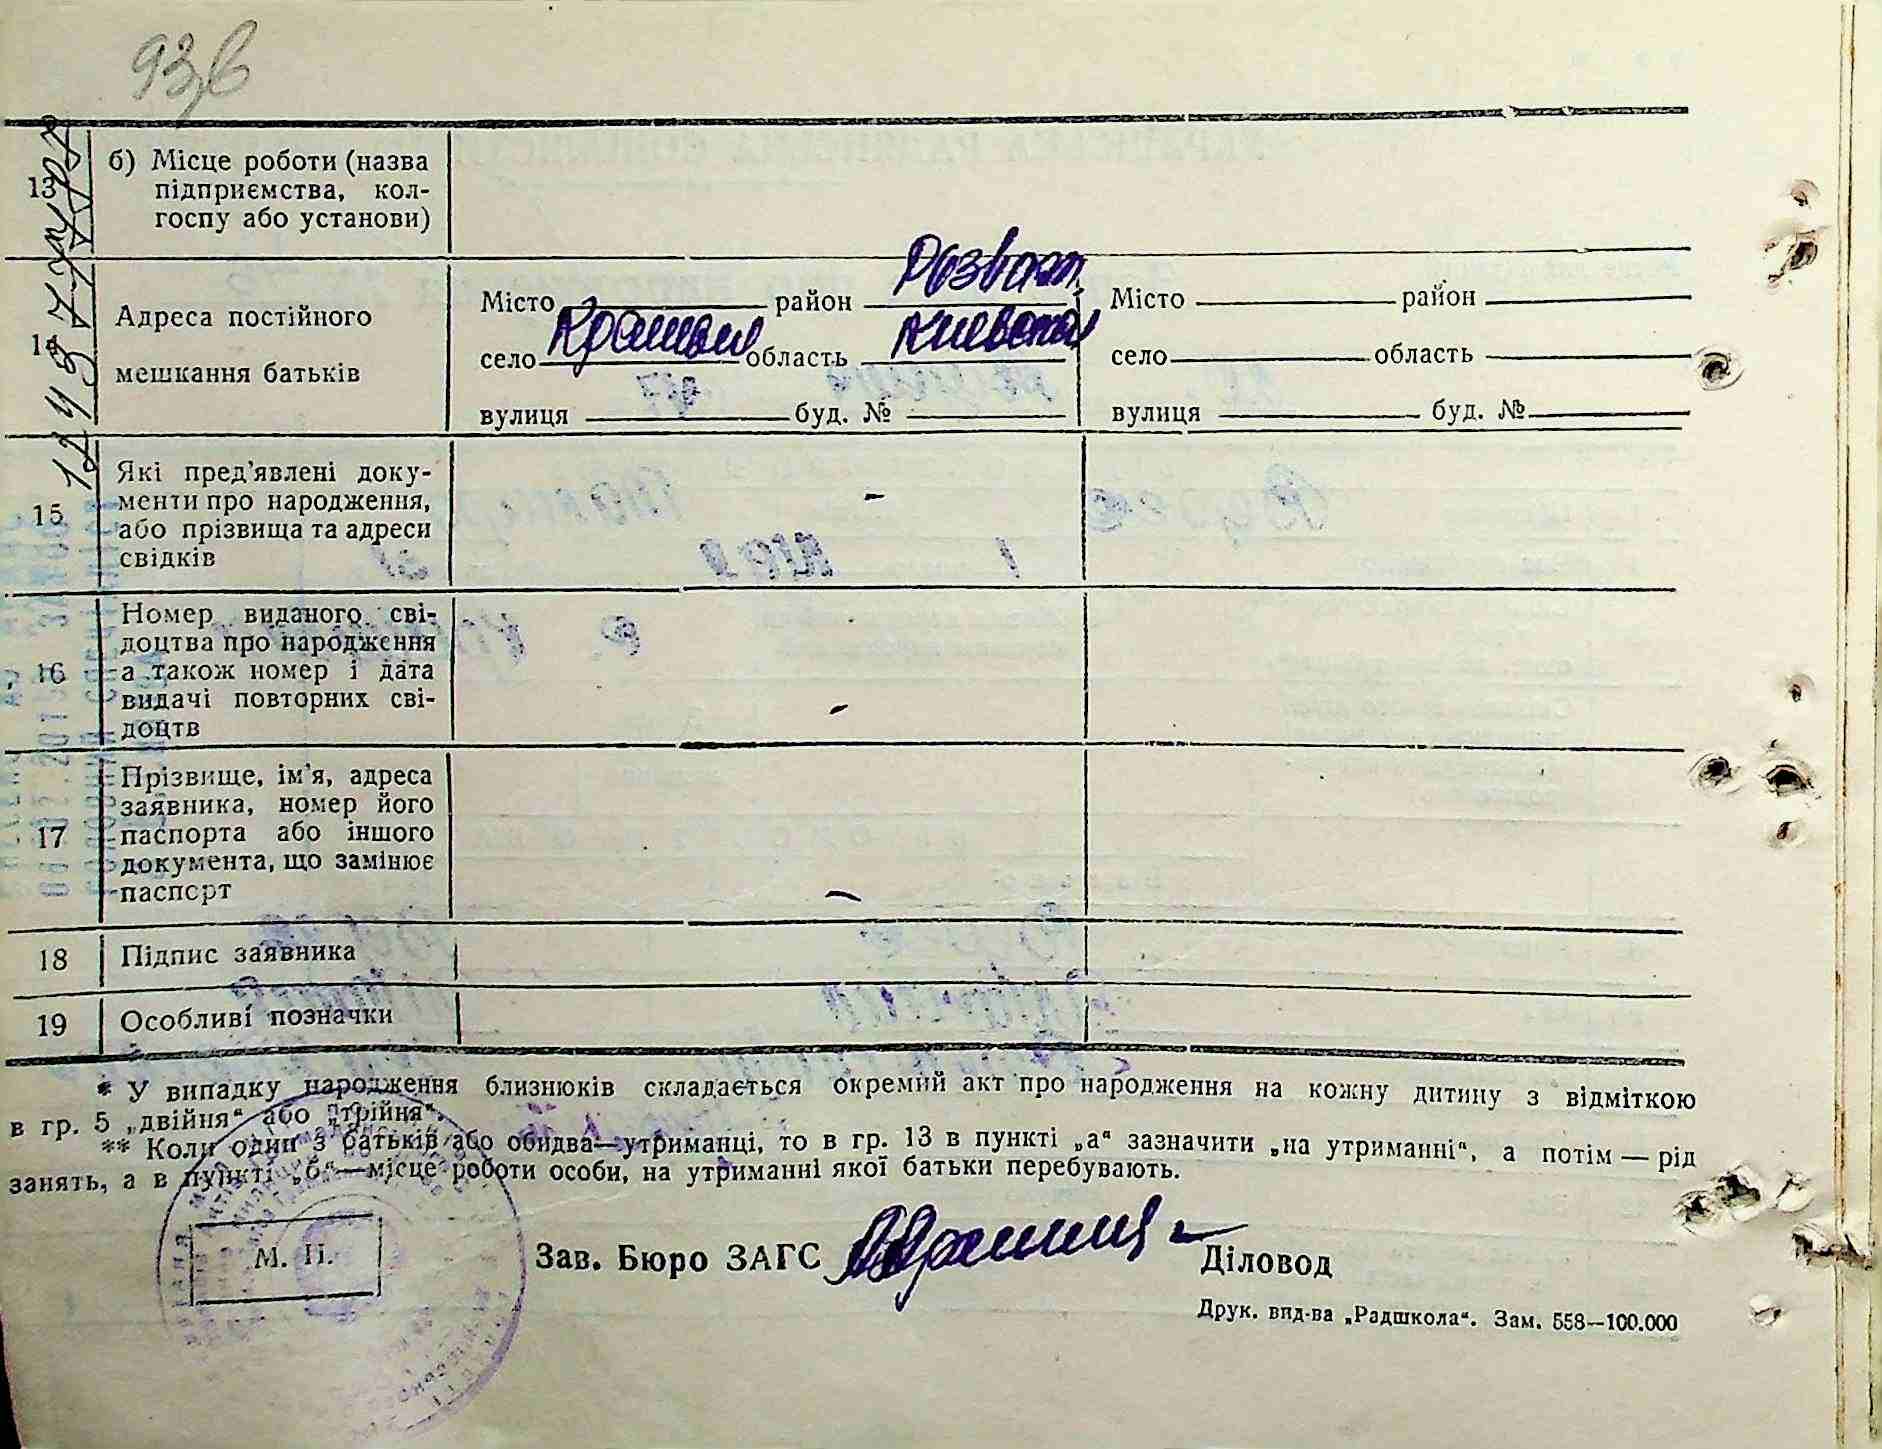 93,б
13 б) Місце роботи (назва
підприємства, кол-
госпу або установи)
14 Адреса постійного
мешкання батьків
Місто район Розваж.
село область Киевская
вулиця буд. №
Місто район
село область
вулиця буд. №
15 Які пред'явлені доку-
менти про народження,
або прізвища та адреси
свідків
-
16 Номер виданого сві-
доцтва про народження
а також номер і дата
видачі повторних сві-
доцтв
-
17 Прізвище, ім'я, адреса
заявника, номер його
паспорта або іншого
документа, що замінює
паспорт
-
18 Підпис заявника
19 Особливі позначки
* У випадку народження близнюків складається окремий акт про народження на кожну дитину з відміткою
в гр. 5 „двійня“ або „трійня“.
** Коли один з батьків або обидва—утриманці, то в гр. 13 в пункті „а“ зазначити „на утриманні“, а потім — рід
занять, а в пункті „б“—місце роботи особи, на утриманні якої батьки перебувають.
М. П.
Зав. Бюро ЗАГС
Діловод
Друк. вид-ва „Радшкола“. Зам. 558—100.000